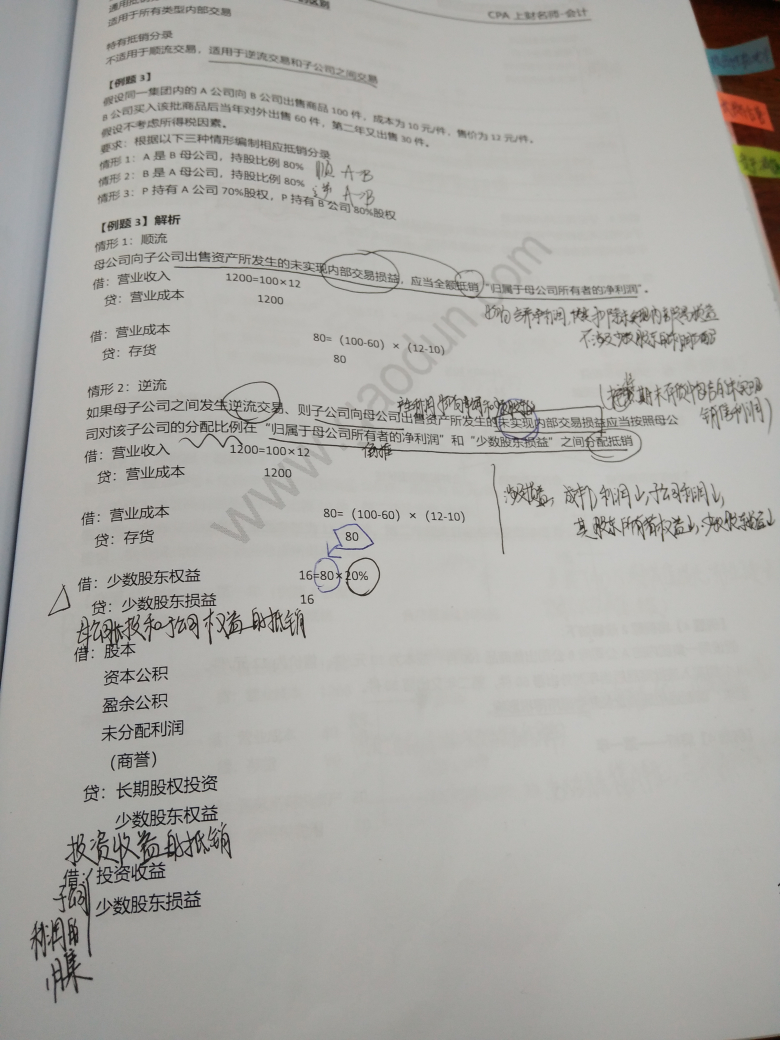 CPA 上财名师·会计
适用于所有类型内部交易
特有抵销分录
不适用于顺流交易，适用于逆流交易和子公司之间交易
【例题 3】
假设同一集团内的 A 公司向 B 公司出售商品 100 件，成本为 10 元/件，售价为 12 元/件。
B 公司买入该批商品后当年对外出售 60 件，第二年又出售 30 件。
假设不考虑所得税因素。
要求：根据以下三种情形编制相应抵销分录
情形 1：A 是 B 母公司，持股比例 80% 顺 A→B
情形 2：B 是 A 母公司，持股比例 80% 逆 A→B
情形 3：P 持有 A 公司 70%股权，P 持有 B 公司 80%股权
【例题 3】解析
情形 1：顺流
母公司向子公司出售资产所发生的未实现内部交易损益，应当全额抵销“归属于母公司所有者的净利润”。
借：营业收入 1200=100×12
贷：营业成本 1200
借：营业成本 80=（100-60）×（12-10）
贷：存货 80
情形 2：逆流
如果母子公司之间发生逆流交易、则子公司向母公司出售资产所发生的未实现内部交易损益应当按照母公
司对该子公司的分配比例在“归属于母公司所有者的净利润”和“少数股东损益”之间分配抵销
借：营业收入 1200=100×12
贷：营业成本 1200
借：营业成本 80=（100-60）×（12-10）
贷：存货 80
借：少数股东权益 16=80×20%
贷：少数股东损益 16
母公司长投和子公司权益的抵销
借：股本
资本公积
盈余公积
未分配利润
（商誉）
贷：长期股权投资
少数股东权益
投资收益的抵销
借：投资收益
少数股东损益
子公司
利润的
归集
www.gaodun.com